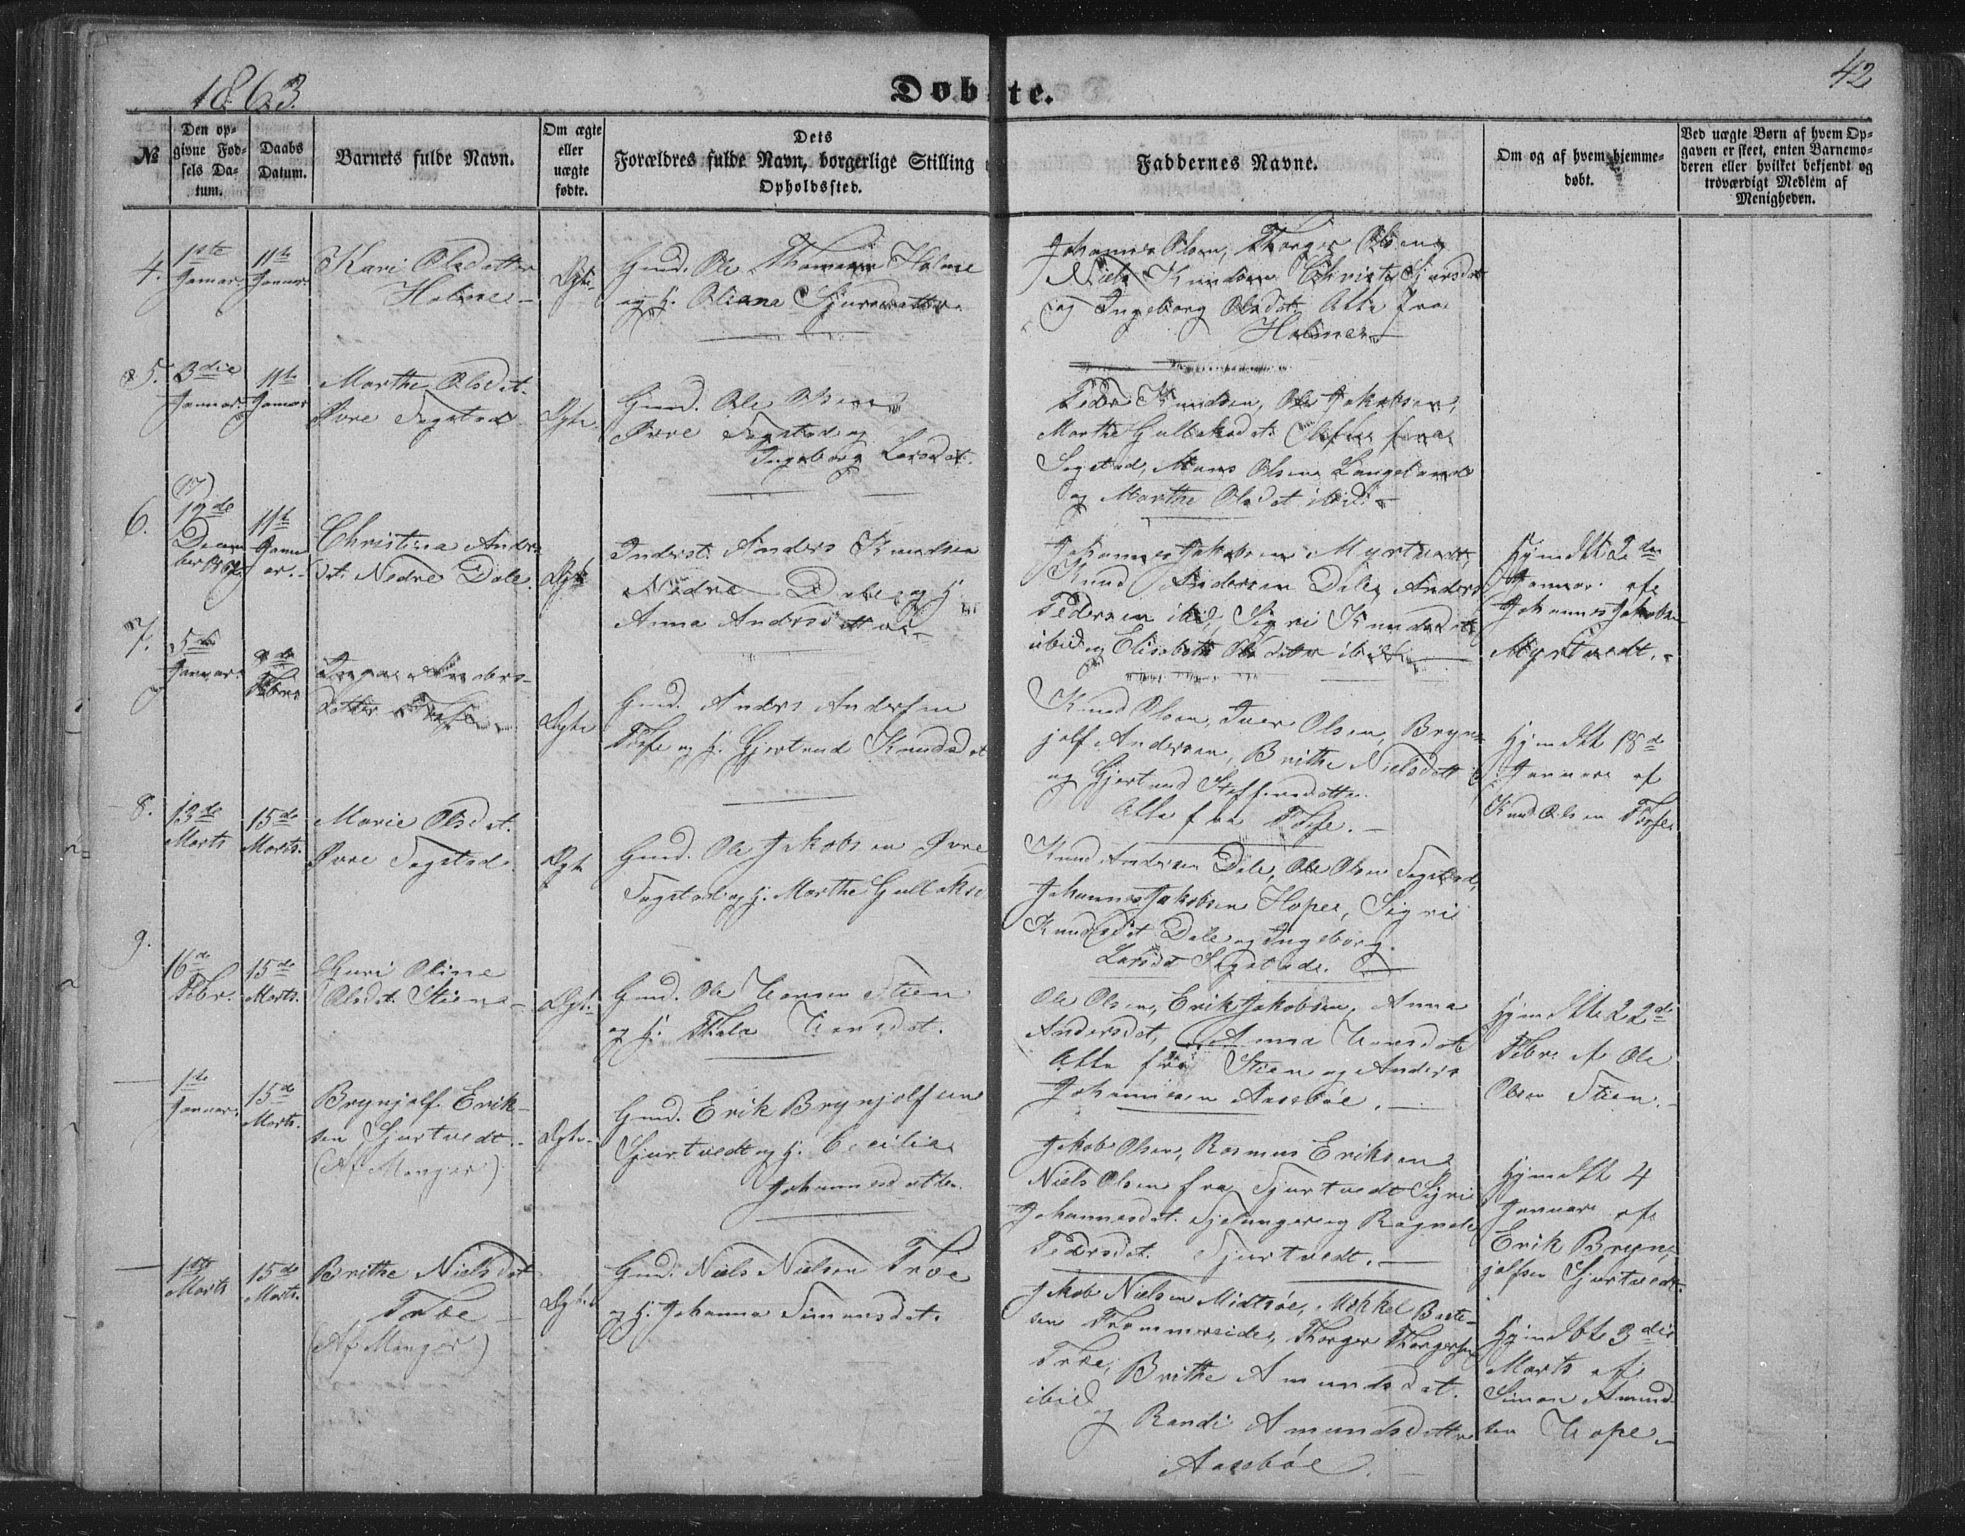 1863.
Døbte.
42
№
Den op-
givne Fød-
sels Da-
tum.
Daabs
Datum.
Barnets fulde Navn.
Om ægte
eller
uægte
fødte.
Dets
Forældres fulde Navn, borgerlige Stilling
Opholdssted.
Faddernes Navne.
Om og af hvem hjemme-
døbt.
Ved uægte Børn af hvem Op-
gaven er skeet, enten Barnemo-
deren eller hvilket bekjendt og
troværdigt Medlem af
Menigheden.
4.
1ste
Januar
11te
Januar
Kari Olsdatter
Holme
Ægte
Gmd. Ole Holme
og h. Oliane Sjursdatter
Johannes Olsen, Thorger Olsen
Niels Knudsen Christi Sjursdat
og Ingeborg Olsdat Alle fra
Holme
5.
3die
Januar
11te
Januar
Marthe Olsdat.
Øvre Sogstad
Ægte
Gmd. Ole Olsen
Øvre Sogstad og
Ingeborg Larsdat.
Peder Knudsen, Ole Jakobsen,
Marthe fra
Sogstad, Mons Olsen Langeland
og Marthe Olsdat ibid.
6.
Decem
ber 1862
11te
Janu
ar.
Christina Anders
dat. Nedre Dale.
Ægte
Inderst. Anders Knudsen
Nedre Dale og h.
Anna Andersdatter
Johannes Jakobsen Myrtvedt,
Knud Andersen Dale, Anders
Pedersen ibid, Sigri Knudsdat
ibid og Elisabeth Olsdatter ibid
Hjmdbt 2den
Januar af
Johannes Jakobsen
Myrtvedt.
7.
5te
Januar
Febru
Anders-
datter Fosse
Ægte
Gmd. Anders Andersen
Fosse og h. Gjertrud Knudsdat
Knud Olsen, Iver Olsen, Bryn-
jolf Andersen, Brithe Nielsdatt
og Gjertrud Steffensdatter
Alle fra Fosse.
Hjmdbt 18de
Januar af
Knud Olsen Fosse
8.
13de
Marts
15de
Marts.
Marie Olsdat.
Øvre Sogstad.
Ægte
Gmd. Ole Jakobsen Øvre
Sogstad og h. Marthe
Knud Andersen Dale, Ole Olsen Sogstad,
Johannes Jakobsen Hope, Sigri
Knudsdat Dale og Ingeborg
Larsdat Sogstad.
9.
16de
Febr.
15de
Marts.
Guri Oline
Olsdat. Steen
Ægte
Gmd. Ole Hansen Steen
og h. Hansdat.
Ole Olsen, Erik Jakobsen, Anna
Andersdat, Anna Hansdat
Alle fra Steen og Anders
Johannesen Aasebøe.
Hjmdbt 22de
Febru af Ole
Olsen Steen.
1ste
Januar.
15de
Marts.
Brynjolf Erik-
sen Sjurtvedt.
(Af Manger)
Ægte
Gmd. Erik Brynjolfsen
Sjurtvedt og h. Cecilia
Johannesdatter.
Jakob Olsen, Rasmus Eriksen
Niels Olsen fra Sjurtvedt Sigri
Johannesdat. Sjelanger og Ragnele
Pedersdat. Sjurtvedt.
Hjmdbt 4
Januar af
Erik Bryn-
jolfsen Sjurtvedt.
1ste
Marts
15de
Marts.
Brithe Nielsdat
Troe
(Af Manger)
Ægte
Gmd. Niels Nielsen Troe
og h. Johanna Simonsdat.
Jakob Nielsen Midtsøe, Mikkel Baste-
sen Frommereide, Thorger Thorgersen
Troe, Brithe Amundsdat.
ibid
og Randi Amundsdatter
Aasebøe.
Hjmdbt 3die
Marts af
Simon Amund-
sen Hope.